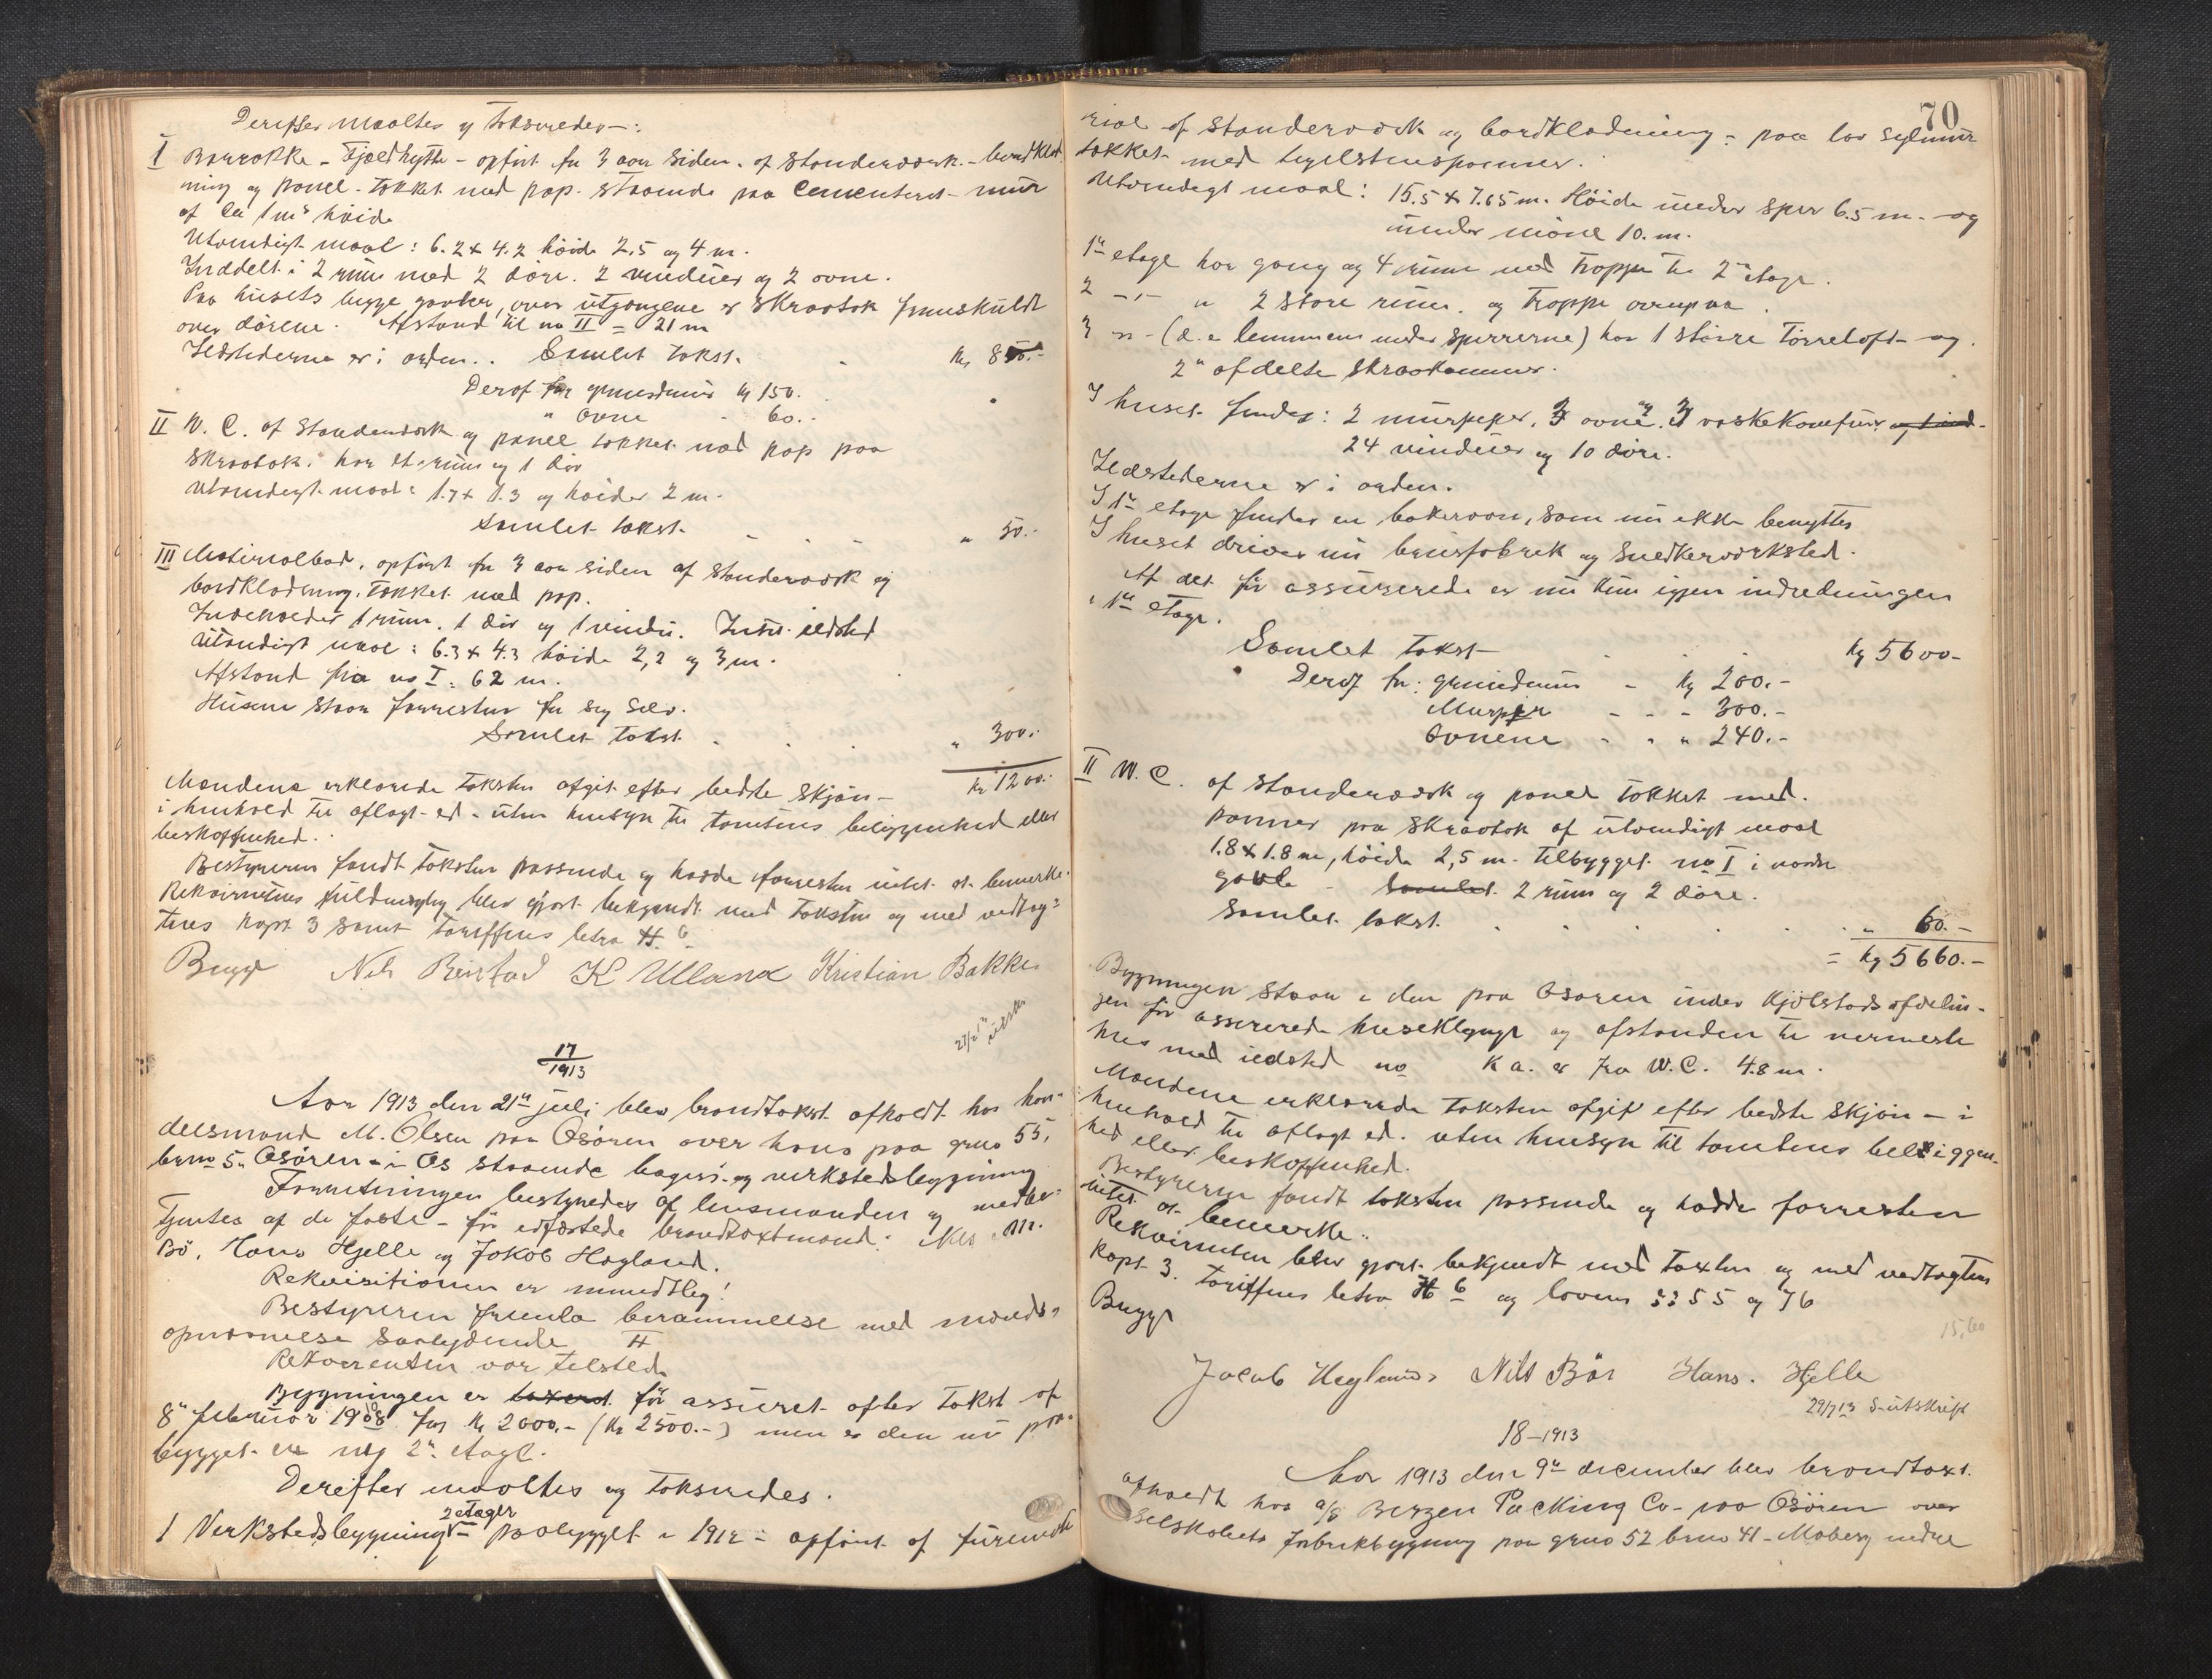 Derefter maaltes og taksredes:
I Barrakke - Fjeldhytte - opført for 3 aar siden. af standerværk - bordklæd-
ning og panel. tækket med pap. staaende paa cementeret mur
af ca 1 m's høide
Utvendigt maal: 6.2 x 4.2 høide 2.5 og 4 m.
Inddelt i 2 rum med 2 døre. 2 vinduer og 2 ovne.
Paa husets begge gavler, over utgangene er skraatak fremskuldt
over dørene. Afstand til no II = 21 m
Ildstederne er i orden. Samlet takst. - kr 850.-
Deraf for grundmur kr 150.
" ovne - 60.-
II W. C. af standerværk og panel tækket med pap paa
skraatak. har et rum og 1 dør
utvendigt maal: 1.7 x 1.3 og høide 2 m.
Samlet takst. - - - " 50.-
III Materialbod, opført for 3 aar siden af standerværk og
bordklædning, tækket med pap.
Indeholder 1 rum. 1 dør og 1 vindu. Intet ildsted
Utvendigt maal: 6.3 x 4.3 høide 2,2 og 3 m.
Afstand fra no I: 62 m.
Husene staar forresten for sig selv.
Samlet takst. " 300.-
kr 1200.-
Mændene erklærede taksten afgit efter bedste skjøn -
i henhold til aflagt ed - uten hensyn til tomtens beliggenhed eller
beskaffenhed.
Bestyreren fandt taksten passende og hadde forresten intet at bemerke.
Rekvirentens fuldmægtig blev gjort bekjendt med taksten og med vedtæg-
tens kapt 3 samt tariffens letra H. 6
Bugge Nils Reistad K Ulland Kristian Bakke
utskr.
17
1913
Aar 1913 den 21de juli blev brandtakst afholdt hos han-
delsmand M. Olsen paa Osøren over hans paa gno 55,
bno 5. Osøren - i Os staaende bageri- og verkstedsbygning
Forretningen bestyredes af lensmanden og medbe-
tjentes af de faste - før edfæstede brandtakstmænd: Nils M.
Bø, Hans Hjelle og Jakob Hagland.
Rekvisitionen er mundtlig!
Bestyreren fremla berammelse med mænds-
opnævnelse saalydende #
Rekvirenten var tilstede
Bygningen er før assuret efter takst af
8de februar 1908 for kr 2000.- (kr 2500.-) men er den nu paa-
bygget en ny 2den etage.
Derefter maaltes og taksredes.
1 Verkstedsbygning 2 etager - paabygget i 1912 - opført af
70
rial af standerværk og bordklædning - paa lav
tækket med teglstenspanner.
Utvendigt maal: 15.5 x 7.65 m. Høide under sper 6.5 m. og
under møne 10. m.
1ste etage har gang og 4 rum med trappe til 2den etage.
2 -"- " 2 store rum. og trappe
3 -"- (d. e lemmen under sperrerne) har 1 større tørreloft og
2de afdelte skraakammer.
I huset findes: 2 murpiper, 3 ovne og 3 vaskekomfur
24 vinduer og 10 døre.
Ildstederne er i orden.
I 1ste etage findes en bakerovn, som nu ikke benyttes
I huset drives nu brusfabrik og snedkerverksted.
Af det før assurerede er nu kun igjen indredningen
i 1ste etage.
Samlet takst - - - kr 5600-
Deraf for: grundmur - kr 200.-
Murpiper - - - 300.-
Ovnene - - " 240.-
II W. C. af standerværk og panel tækket med.
panner paa skraatak af utvendigt maal
1.8 x 1.8 m, høide 2,5 m. tilbygget no I i nordre
gavl - samlet 2 rum og 2 døre.
Samlet takst. " 60.-
= kr 5660.-
Bygningen staar i den paa Osøren under Kjølstadsafdelin-
gen før assurerede huseklynge og afstanden til nærmeste
hus med ildsted no K a. er fra W.C. 4.8 m.
Mændene erklærede taksten afgit efter bedste skjøn - i
henhold til aflagt ed. uten hensyn til tomtens beliggen-
hed eller beskaffenhed.
Bestyreren fandt taksten passende og hadde forresten
intet at bemerke.
Rekvirenten blev gjort bekjendt med taxten og med vedtægtens
Kapt 3. tariffens letra H 6 og lovens §§ 55 og 76
Bugge
15,60
Jacob Haglund. Nils Bør Hans. Hjelle
29/7 13 utskrift
18-1913
Aar 1913 den 9de december blev brandtaxt.
afholdt hos a/s Bergen Packing Co - paa Osøren over
selskabets fabrikbygning paa gno 52 bno 41 - Moberg nedre